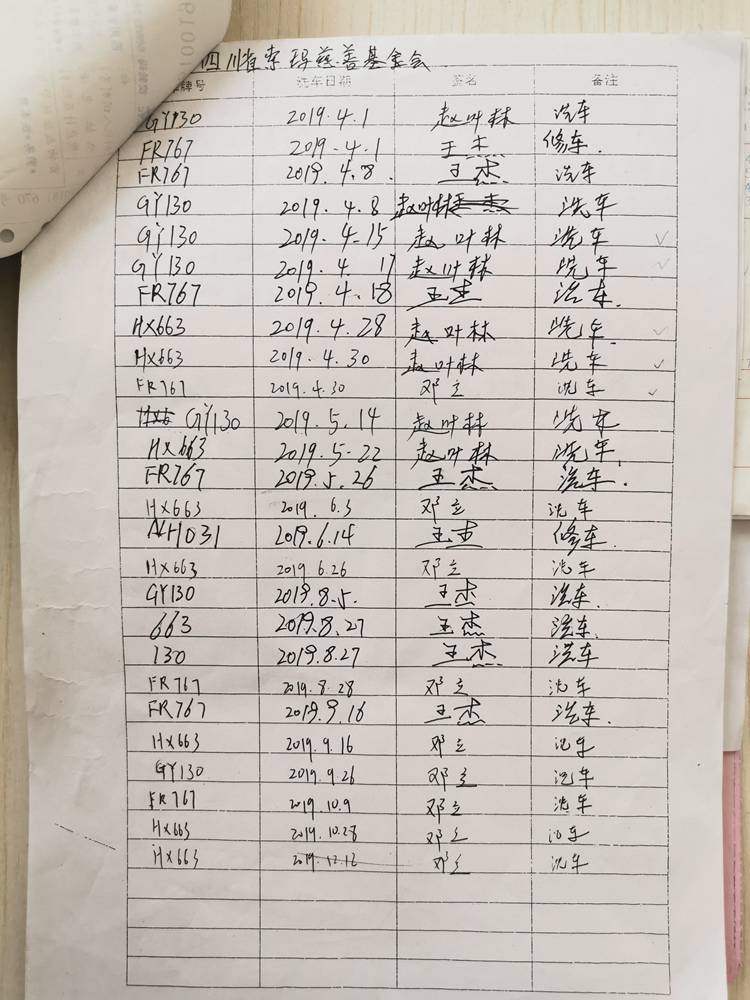 四川省索玛慈善基金会
牌号 洗车日期 签名 备注
GY130 2019.4.1 赵叶林 洗车
FR767 2019.4.1 王杰 修车.
FR767 2019.4.8. 王杰 洗车
GY130 2019.4.8 赵叶林 洗车
GY130 2019.4.15 赵叶林 洗车 ✓
GY130 2019.4.17 赵叶林 洗车 ✓
FR767 2019.4.18 王杰 洗车.
HX663 2019.4.28 赵叶林 洗车 ✓
HX663 2019.4.30 赵叶林 洗车 ✓
FR767 2019.4.30 邓立 洗车 ✓
GY130 2019.5.14 赵叶林 洗车
HX663 2019.5-22 赵叶林 洗车
FR767 2019.5.26 王杰 洗车.
HX663 2019.6.3 邓立 洗车
2019.6.14 王杰 修车.
HX663 2019.6.26 邓立 洗车
GY130 2019.8.5. 王杰 洗车.
663 2019.8.27 王杰 洗车.
130 2019.8.27 王杰 洗车
FR767 2019.8.28 邓立 洗车
FR767 2019.9.16 王杰 洗车.
HX663 2019.9.16 邓立 洗车
GY130 2019.9.26 邓立 洗车
FR767 2019.10.9 邓立 洗车
HX663 2019.10.28 邓立 洗车
HX663 2019.12.12 邓立 洗车